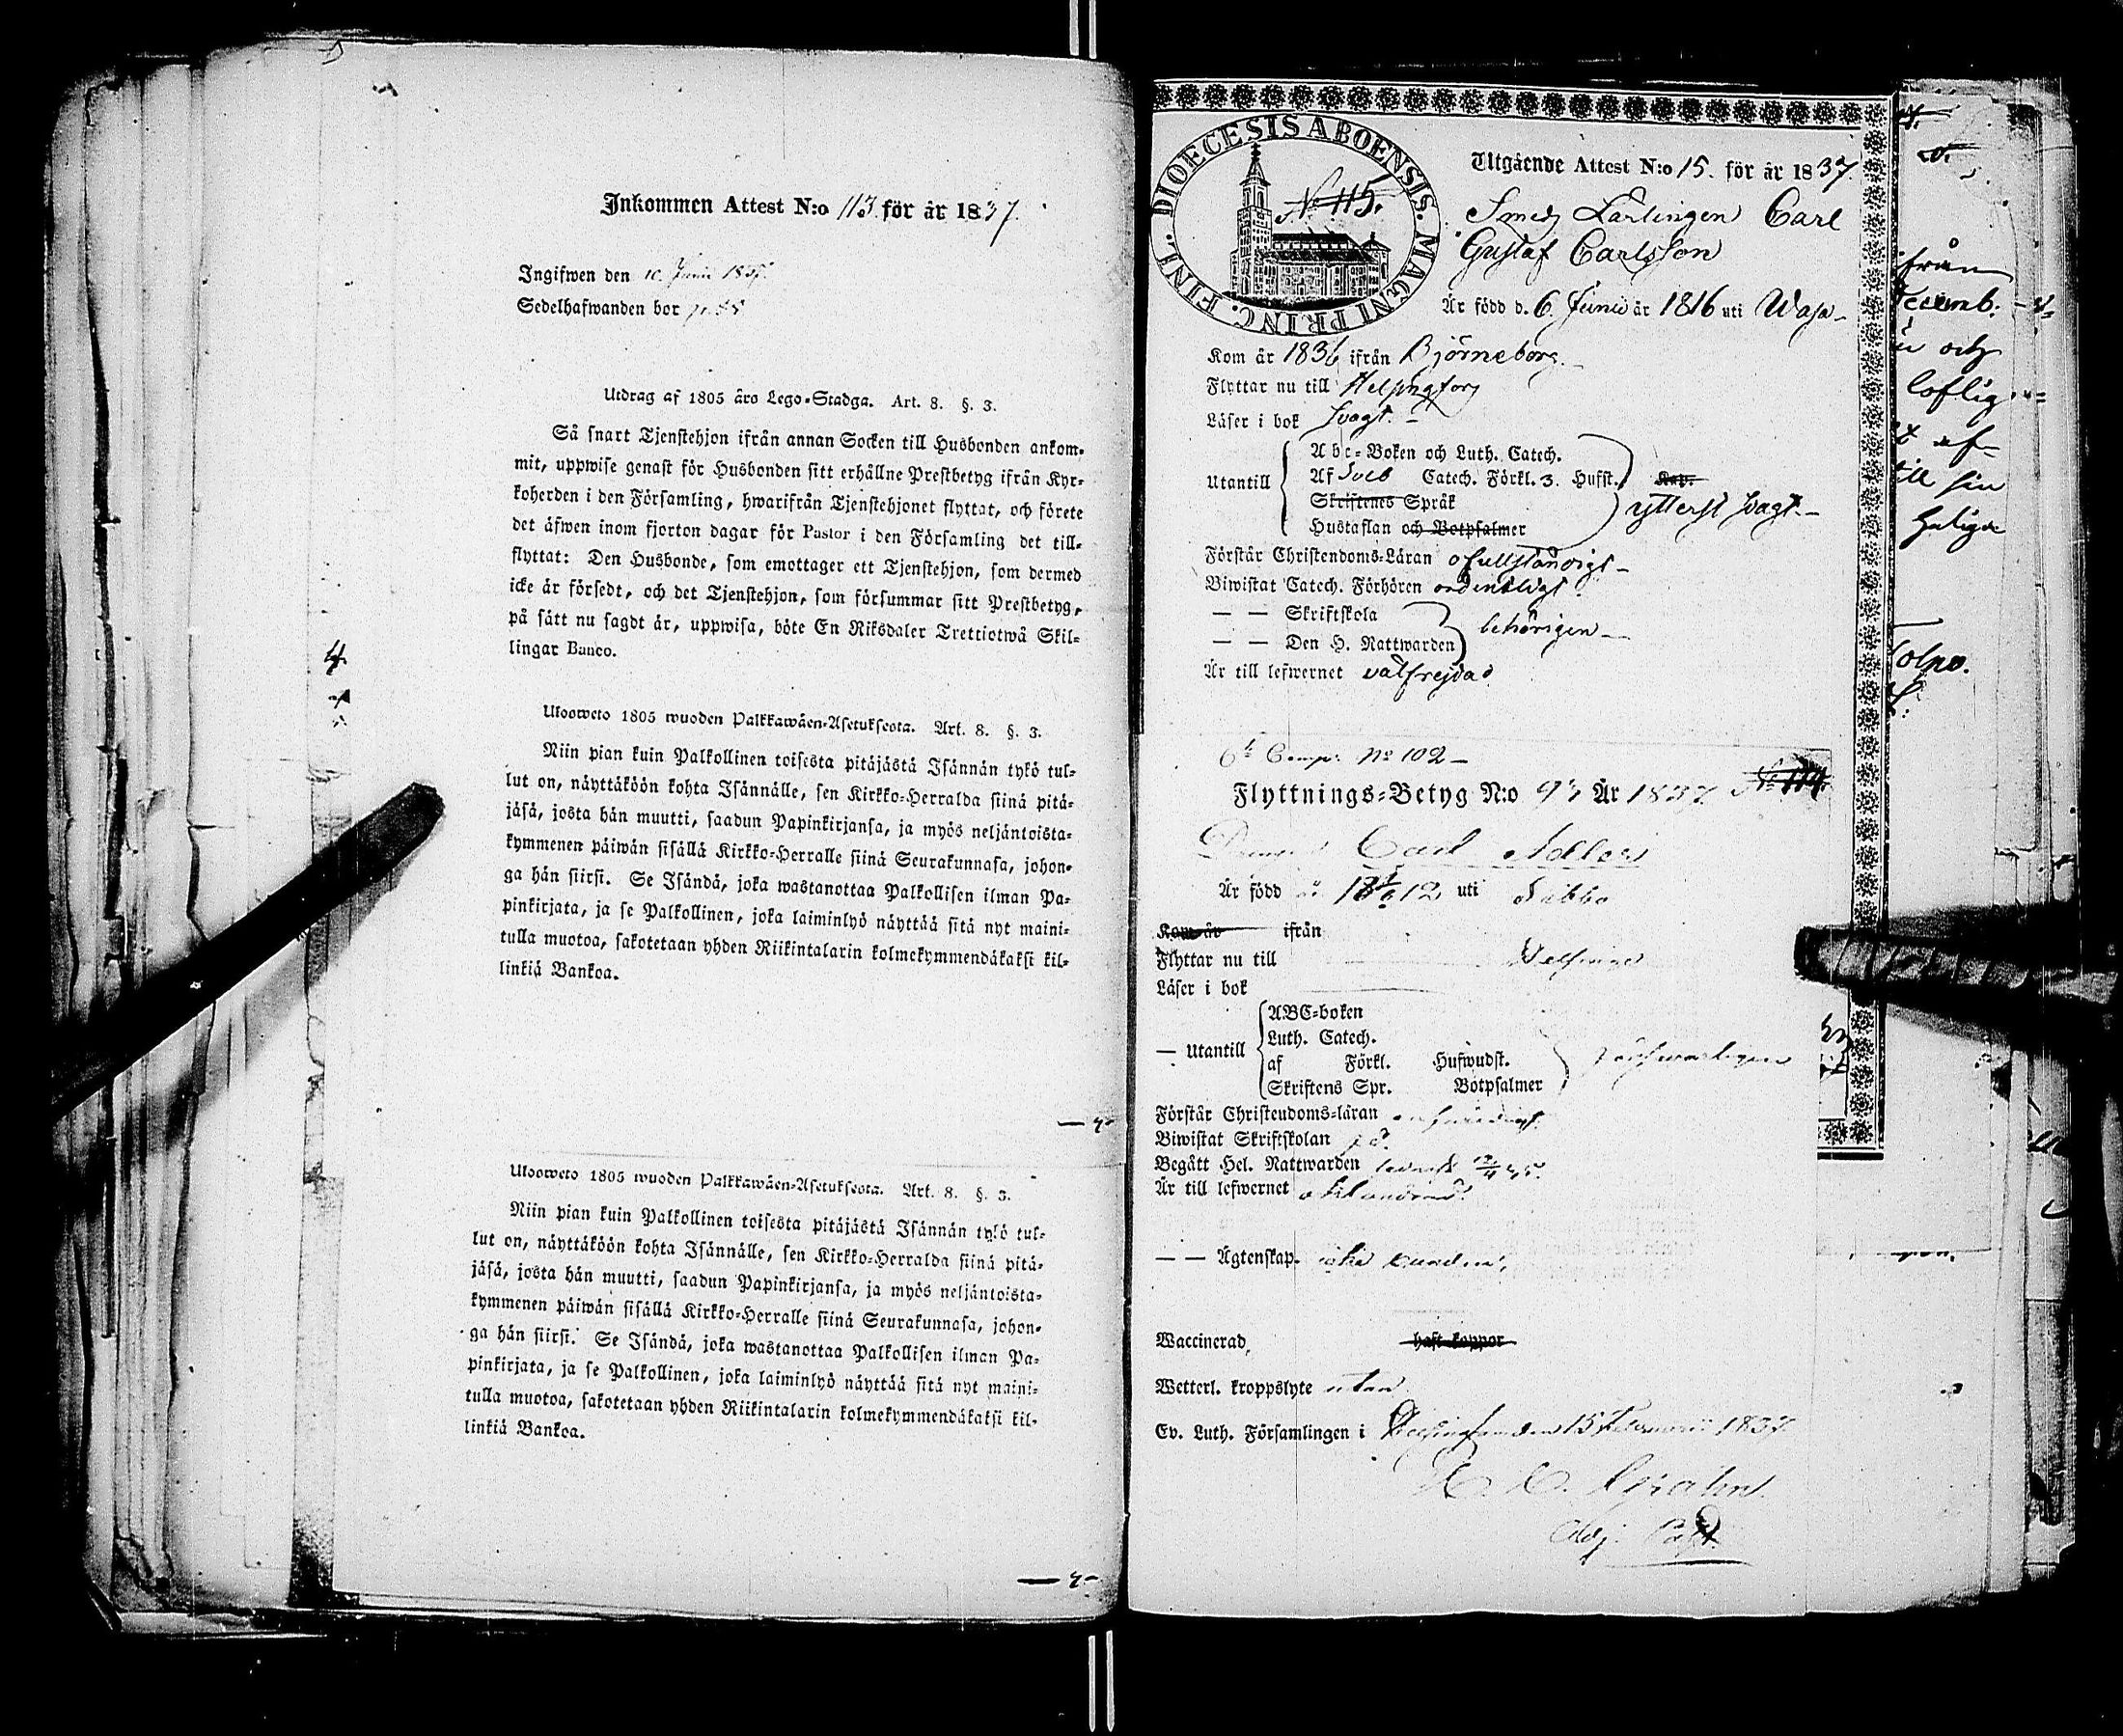 Inkommen Attest N:o 113. för år 1837.
Ingifwen den 10. Junii 1837.
Sedelhafwanden bor
Utdrag af 1805 års Lego-Stadga. Art. 8. §. 3.
Så snart Tjenstehjon ifrån annan Socken till Husbonden ankom-
mit, uppwise genast för Husbonden sitt erhållne Prestbetyg ifrån Kyr-
koherden i den Församling, hwarifrån Tjenstehjonet flyttat, och förete
det äfwen inom fjorton dagar för Pastor i den Församling det till-
flyttat: Den Husbonde, som emottager ett Tjenstehjon, som dermed
icke är försedt, och det Tjenstehjon, som försummar sitt Prestbetyg,
på sätt nu sagdt är, uppwisa, böte En Riksdaler Trettiotwå Skil-
lingar Banco.
4.
Ulosweto 1805 wuoden Palkkawäen-Asetuksesta. Art. 8. §. 3.
Niin pian kuin Palkollinen toisesta pitäjästä Isännän tykö tul-
lut on, näyttäköön kohta Isännälle, sen Kirkko-Herralda siinä pitä-
jäsä, josta hän muutti, saadun Papinkirjansa, ja myös neljäntoista-
kymmenen päiwän sisällä Kirkko-Herralle siinä Seurakunnasa, johon-
ga hän siirsi. Se Isändä, joka wastanottaa Palkollisen ilman Pa-
pinkirjata, ja se Palkollinen, joka laiminlyö näyttää sitä nyt maini-
tulla muotoa, sakotetaan yhden Riikintalarin kolmekymmendäkaksi kil-
linkiä Bankoa.
Ulosweto 1805 wuoden Palkkawäen-Asetuksesta. Art. 8. §. 3.
Niin pian kuin Palkollinen toisesta pitäjästä Isännän tykö tul-
lut on, näyttäköön kohta Isännälle, sen Kirkko-Herralda siinä pitä-
jäsä, josta hän muutti, saadun Papinkirjansa, ja myös neljäntoista-
kymmenen päiwän sisällä Kirkko-Herralle siinä Seurakunnasa, johon-
ga hän siirsi. Se Isändä, joka wastanottaa Palkollisen ilman Pa-
pinkirjata, ja se Palkollinen, joka laiminlyö näyttää sitä nyt maini-
tulla muotoa, sakotetaan yhden Riikintalarin kolmekymmendäkaksi kil-
linkiä Bankoa.
DIOECESIS ABOENSIS. MAGNI PRINC. FINL.
No 115.
Utgående Attest N:o 15. för år 1837.
Smeds Lärlingen Carl
Gustaf Carlsson
Är född d. 6 Junii år 1816 uti Wasa
Kom år 1836 ifrån Björneborg
Flyttar nu till Helsingfors
Läser i bok svagt.
Utantill
Abc-Boken och Luth. Catech.
Af Sveb Catech. Förkl. 3. Hufst.
Skriftenes Språk
Hustaflan och Botpsalmer
Kap.
ytterst svagt.
Förstår Christendoms-Läran ofullständigt
Biwistat Catech. Förhören ordentligt
— — Skriftskola
— — Den H. Nattwarden
behörigen
Är till lefwernet välfrejdad
6te Comp: No 102
Flyttnings-Betyg N:o 93 År 1837. No 114.
Carl Adler
Är född 1812 uti Sibbo
Kom år ifrån
Flyttar nu till
Läser i bok
— Utantill
ABC-boken
Luth. Catech.
af Förkl. Hufwudst.
Skriftens Spr. Botpsalmer
försvarligen
Förstår Christendoms-läran
Biwistat Skriftskolan
Begått Hel. Nattwarden
Är till lefwernet oklandrad
— — Ägtenskap.
Waccinerad, haft koppor
Wetterl. kroppslyte utan
Ev. Luth. Församlingen i Helsinge den 15 Februarii 1837.
Adj. Past.
ifrån
Decemb:
och
loflig
af
till sin